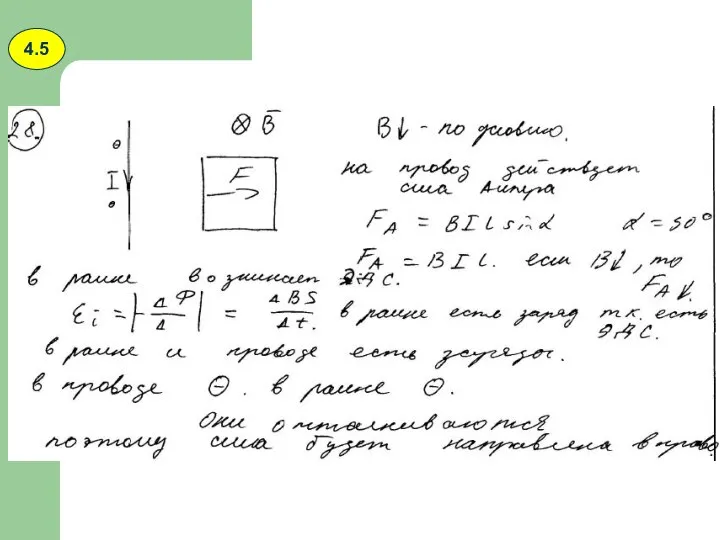 4.5
28.
I
⊗ B̅
F
B↓ - по условию.
на провод действует
сила Ампера
F_A = BIL sinα α = 90°
F_A = BIL. если B↓, то
F_A↓.
в рамке возникает Э.Д.С.
Ɛi = |-ΔФ/Δ| = ΔBS/Δt. в рамке есть заряд т.к. есть
Э.Д.С.
в рамке и проводе есть заряды.
в проводе ⊖. в рамке ⊖.
Они отталкиваются
поэтому сила будет направлена вправо.